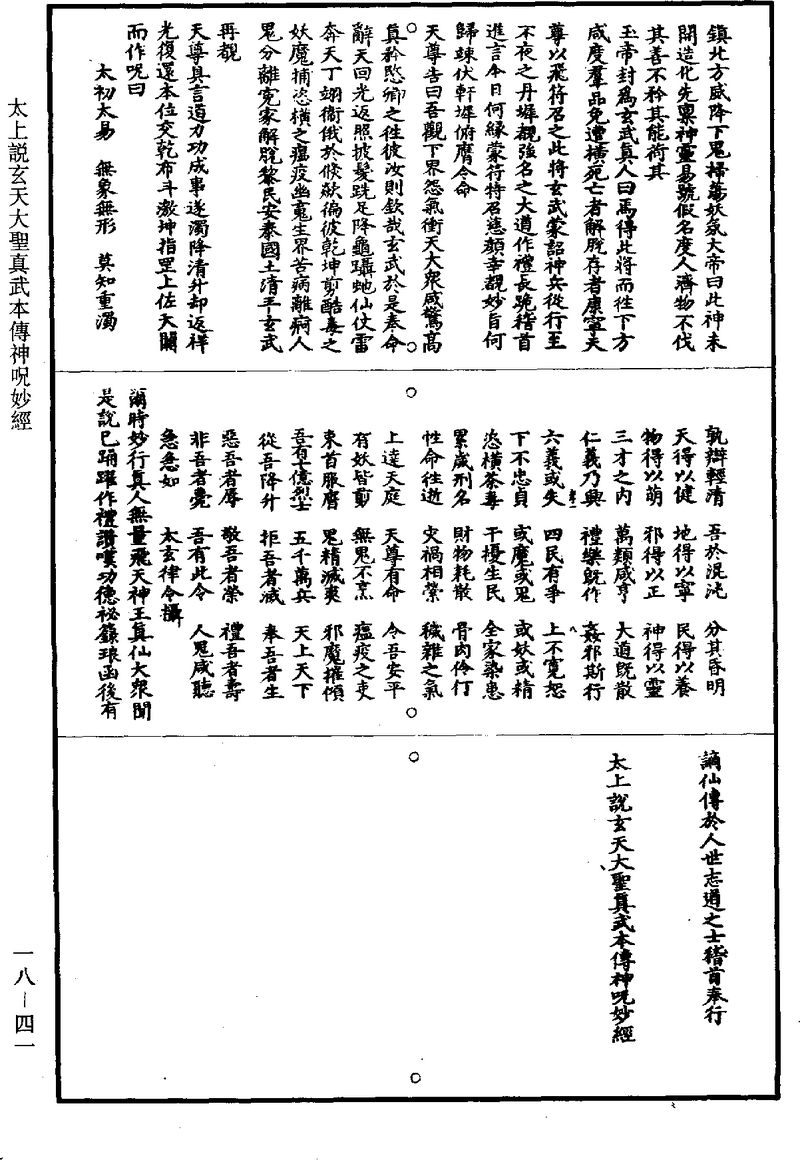 鎮北方威降下鬼掃蕩妖氛大帝曰此神未
開造化先稟神靈易號假名度人濟物不伐
其善不矜其能荷其
玉帝封為玄武真人曰焉得此將而徃下方
咸度羣品免遭橫死亡者解脫存者康寧天
尊以飛符召之此將玄武蒙詔神兵從行至
不夜之丹墀覩強名之大道作禮長跪稽首
進言今日何緣蒙符特召慈顏幸覩妙旨何
歸竦伏軒墀俯膺令命
天尊告曰吾觀下界怨氣衝天大衆咸驚高
真矜愍卿之徃彼汝則欽哉玄武於是奉命
辭天回光返照披髮跣足降龜躡虵仙仗雷
奔天丁翊衛俄於倏欻徧彼乾坤剪酷毒之
妖魔捕恣橫之瘟疫幽冤生界苦病離痾人
鬼分離寃家解脫黎民安泰國土清平玄武
再覩
天尊具言道力功成事遂濁降清升却返祥
光復還本位交乾布斗激坤指罡上佐天關
而作呪曰
太初太易　無象無形　莫知重濁
孰辯輕清　吾於混沌　分其昏明
天得以健　地得以寧　民得以養
物得以萌　邪得以正　神得以靈
三才之内　萬類咸亨　大道旣散
仁義乃興　禮樂旣作　姦邪斯行
六義或失　四民有爭　上不寬恕
下不忠貞　或魔或鬼　或妖或精
恣橫荼毒　干擾生民　全家染患
累歲刑名　財物耗散　骨肉伶仃
性命徃逝　灾禍相縈　穢雜之氣
上達天庭　天尊有命　令吾安平
有妖皆剪　無鬼不烹　瘟疫之吏
束首服膺　鬼精滅爽　邪魔摧傾
吾有十億烈士　五千萬兵　天上天下
從吾降升　拒吾者滅　奉吾者生
惡吾者辱　敬吾者榮　禮吾者壽
非吾者薨　吾有此令　人鬼咸聽
急急如　太玄律令攝
爾時妙行真人無量飛天神王真仙大衆聞
是說已踊躍作禮讚嘆功德祕籙琅函後有
謫仙傳於人世志道之士稽首奉行
太上說玄天大聖真武本傳神呪妙經
太上說玄天大聖真武本傳神呪妙經
一八－四一